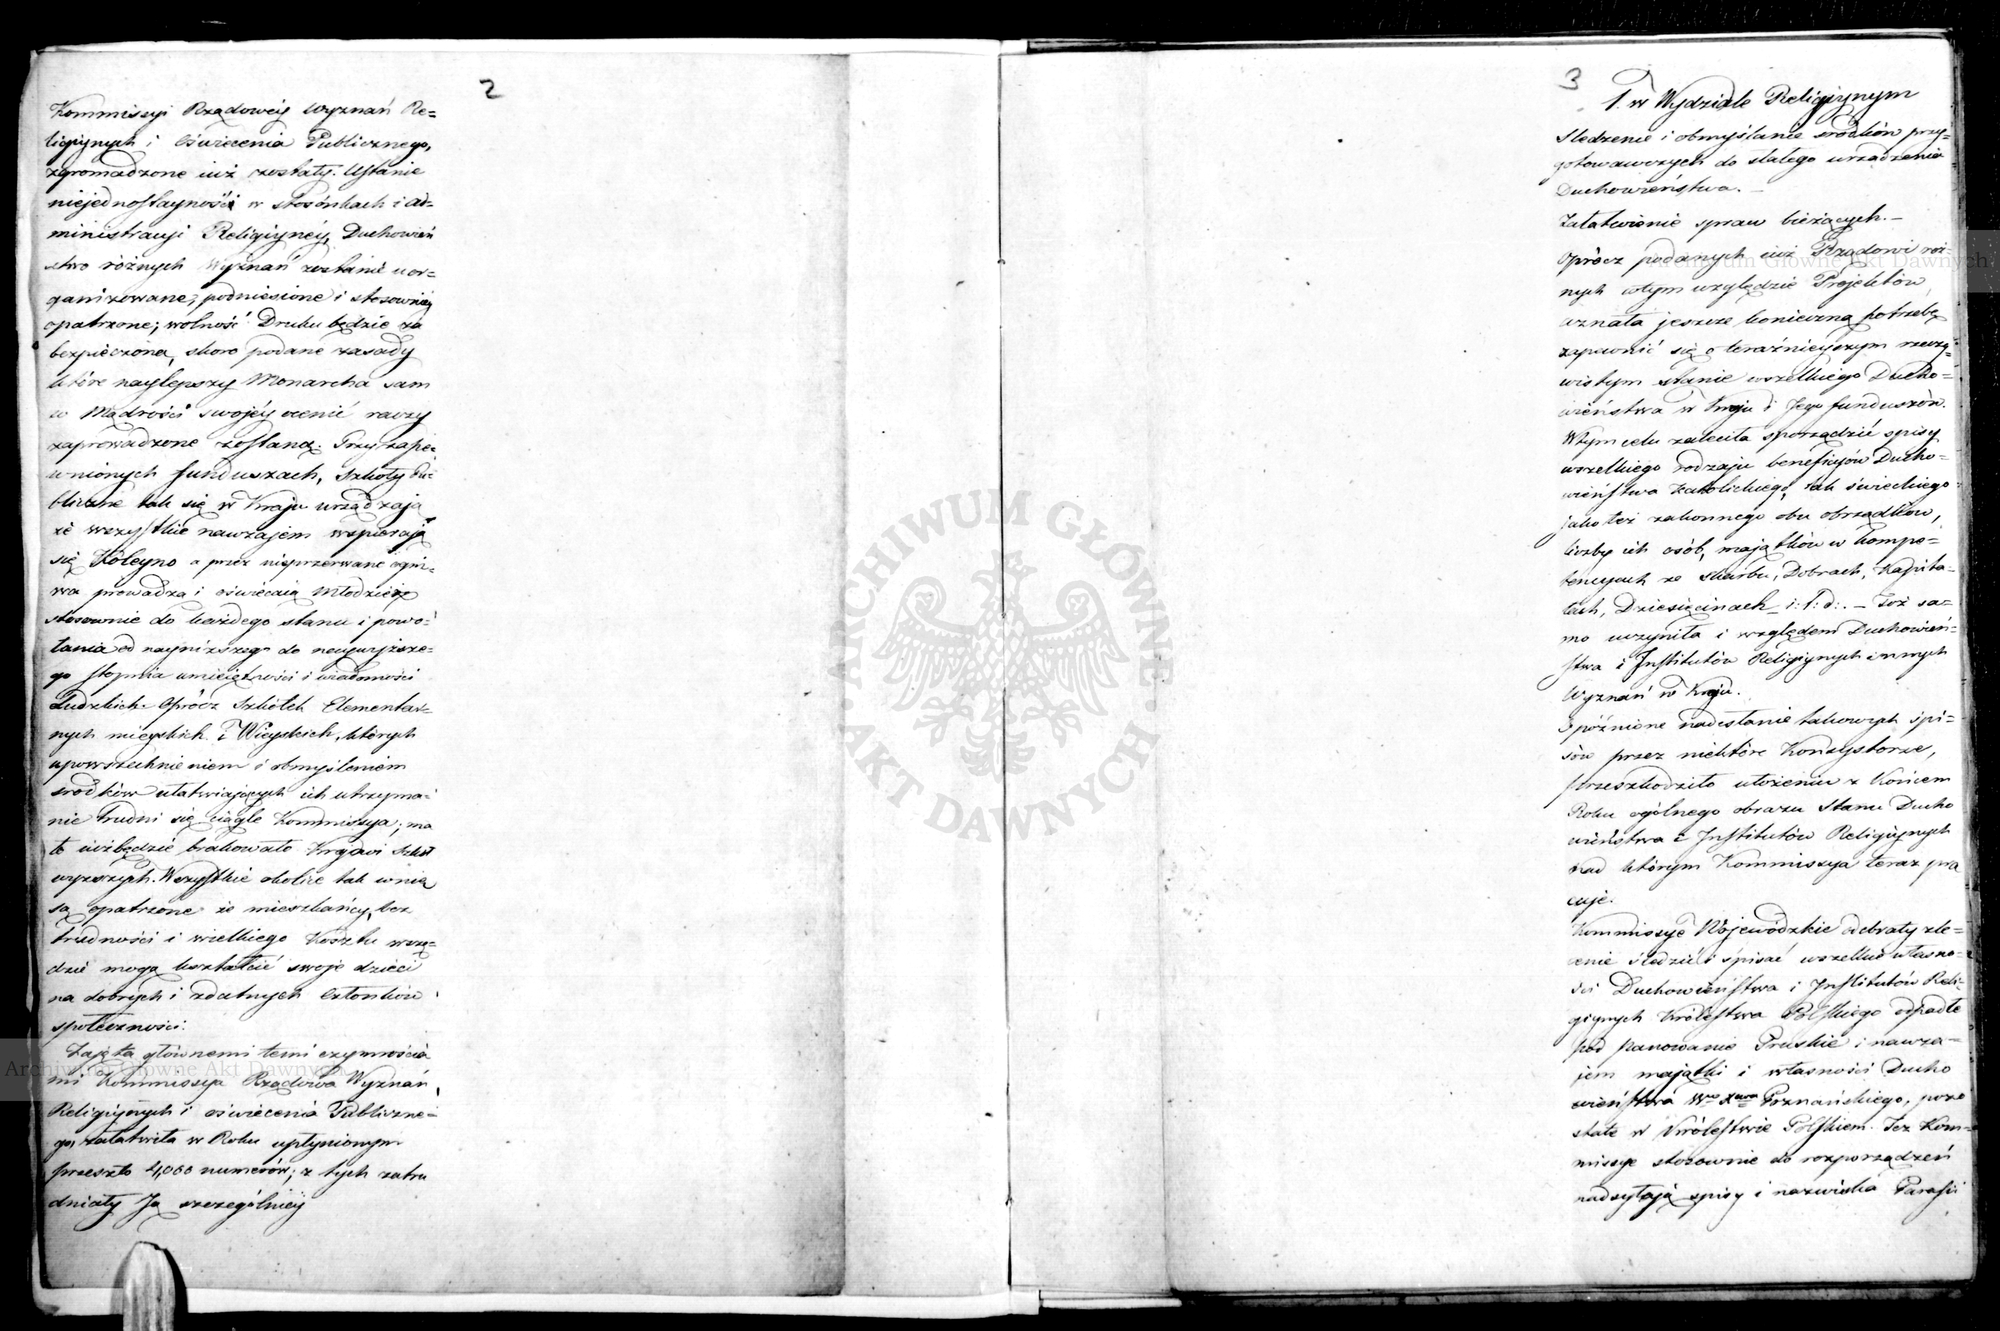 2
Kommissyi Rządowéy Wyznań Re=
ligiynych i Oświecenia Publicznego,
zgromadzone iuż zostały. Ustanie
niejednostayność w stosónkach i ad=
ministracyi Religiynéy, Duchowień
stwo różnych Wyznań zostanie uor=
ganizowane, podniesione i stosowniéy
opatrzone; wolność Druku będzie za
bezpieczona, skoro podane zasady
które naylepszy Monarcha sam
w Mądrości swojéy ocenić raczy
zaprowadzone zostaną. Przy zape=
wnionych funduszach, Szkoły Pu=
bliczne tak się w Kraju urządzają
że wszystkie nawzajem wspierają
się Koleyno a przez nieprzerwane ogni=
wa prowadzą i oświecaią Młodzież
stosownie do każdego stanu i powo=
łania od nayniższego do naywyższe=
go stopnia umieiętności i wiadomości
Ludzkich. Oprócz Szkółek Elementar=
nych mieyskich i Wieyskich, których
upowszechnieniem i obmyśleniem
srodków ułatwiaiących ich utrzyma=
nie trudni się ciągle Kommissya; ma
ło iuż będzie brakowało Krajowi Szkół
wyższych. Wszystkie okolice tak w nie
są opatrzone że mieszkańcy bez
trudności i wielkiego Kosztu wszę=
dzie mogą kształcić swoje dzieci
na dobrych i zdatnych Członków
społeczności.
Zajęta głównemi temi czynnościa
mi Kommissya Rządowa Wyznań
Religiynych i oświecenia Publiczne=
go, załatwiła w Roku upłynionym
przeszło 4,000 numerów; z tych zatru
dniały Ją szczególniéy
3
1. w Wydziale Religiynym
Sledzenie i obmyślanie srodków przy=
gotowawczych do stałego urządzenia
Duchowieństwa. —
Załatwienie spraw bieżących. —
Oprócz podanych iuż Rządowi róż=
nych w tym względzie Projektów,
uznała jeszcze konieczną potrzebę
zapewnić się o teraźnieyszym rzeczy=
wistym stanie wszelkiego Ducho=
wieństwa w Kraju i Jego funduszów.
W tym celu zaleciła sporządzić spisy
wszelkiego rodzaju beneficyów Ducho=
wieństwa Katolickiego, tak świeckiego
jako też zakonnego obu obrządków,
liczbę ich osób, majątków w kompe=
tencyach ze skarbu, Dobrach, Kapita=
łach, Dziesięcinach i: t: d:. — Toż sa=
mo uczyniła i względem Duchowień=
stwa i Instytutów Religiynych innych
Wyznań w Kraju.
Spóźnione nadesłanie takowych spi=
sów przez niektóre Konsystorze,
przeszkodziło ułożeniu z Końcem
Roku ogólnego obrazu Stanu Ducho
wieństwa i Instytutów Religiynych
nad którym Kommissya teraz pra
cuje.
Kommissye Wojewódzkie odebrały zle=
cenie śledzić i spisać wszelkie własno=
ści Duchowieństwa i Instytutów Reli=
giynych Królestwa Polskiego odpadłe
pod panowanie Pruskie i nawza=
jem majątki i własności Ducho
wieństwa Wgo Xtwa Poznańskiego, pozo
stałe w Królestwie Polskiem. Też Kom=
missye stosownie do rozporządzeń
nadsyłają spisy i nazwiska Parafii
ARCHIWUM GŁÓWNE · AKT DAWNYCH ·
Archiwum Główne Akt Dawnych
Archiwum Główne Akt Dawnych